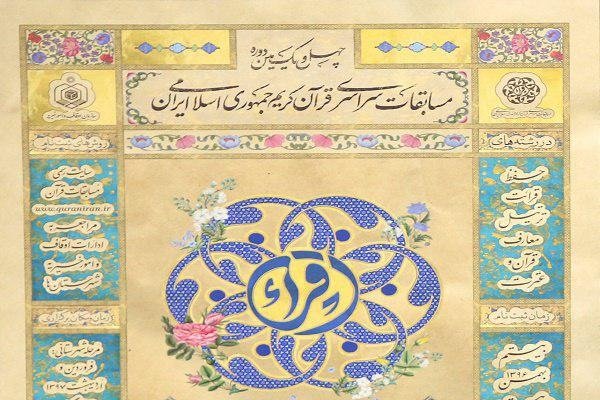 چهل و یکمین دوره
مسابقات سراسری قرآن کریم جمهوری اسلامی ایران
سازمان اوقاف و امور خیریه
در رشته‌های
حفظ
قرائت
ترتیل
معارف
قرآن و
عترت
روش‌های ثبت نام
سایت رسمی
مسابقات قرآن
www.quraniran.ir
مراجعه به
ادارات اوقاف
و امور خیریه
شهرستان‌ها
اقراء
زمان ثبت نام
بیستم
بهمن
۱۳۹۶
زمان و مکان برگزاری
مرحله شهرستانی:
فروردین و
اردیبهشت ۱۳۹۷